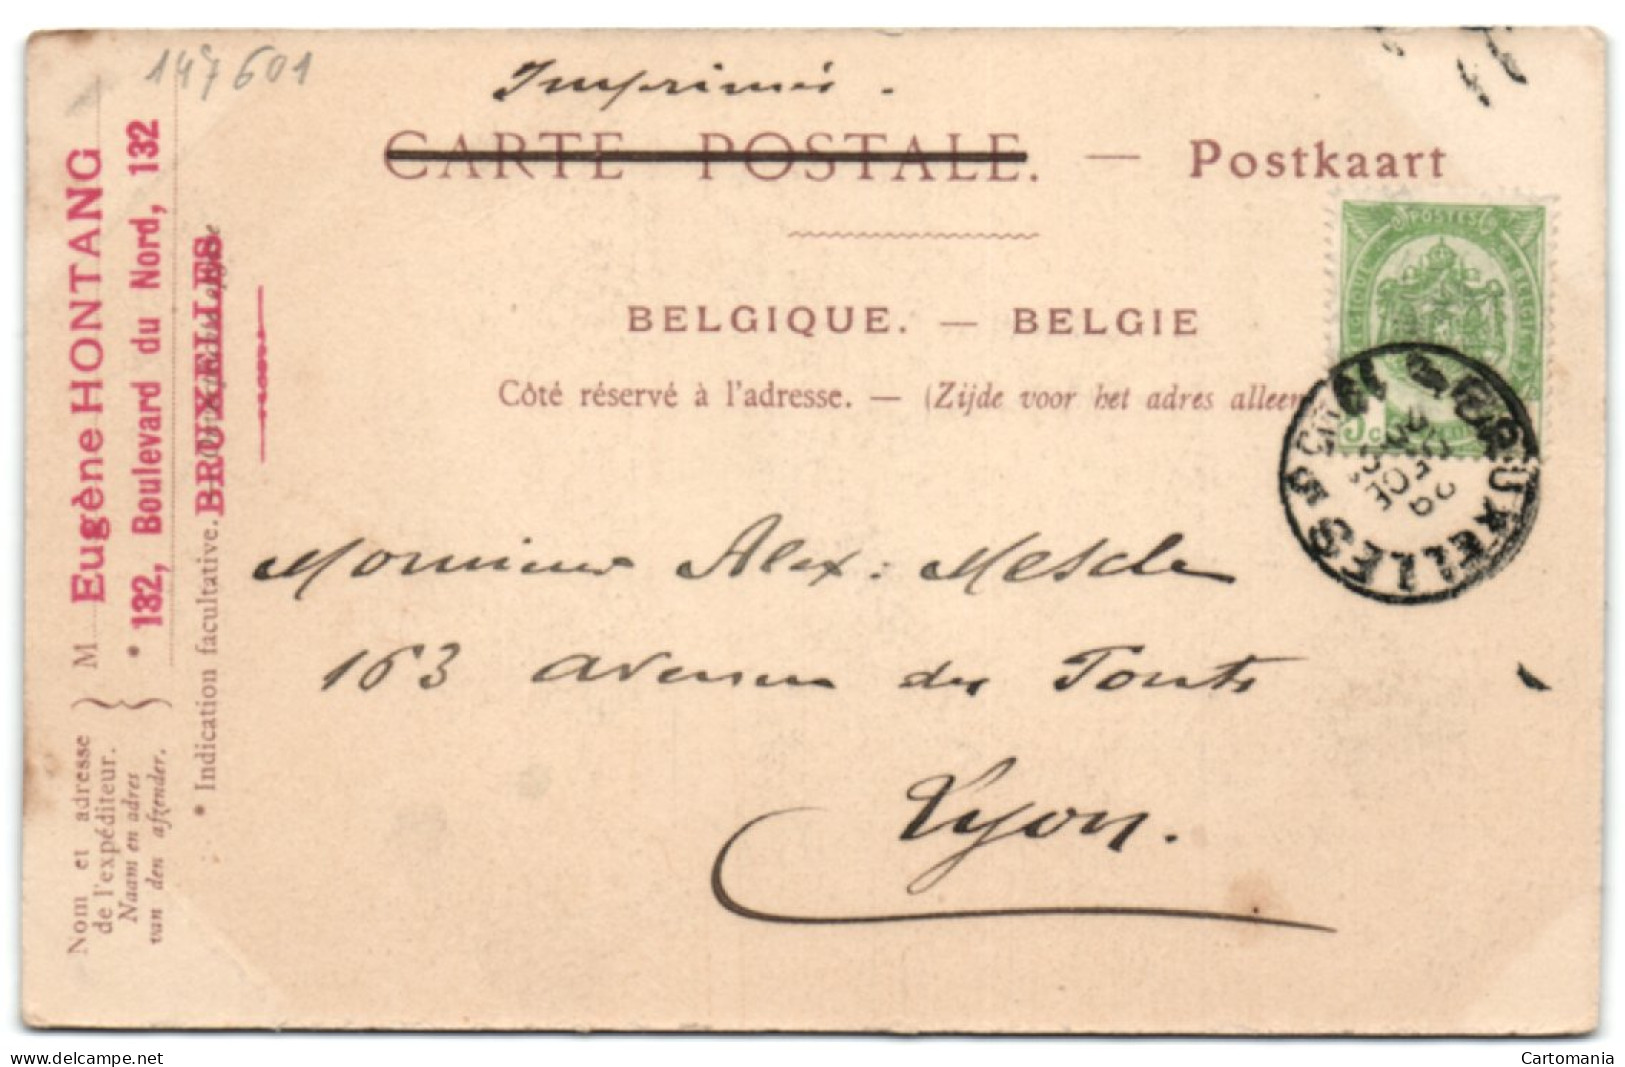 147601
Imprimés.
CARTE POSTALE. — Postkaart
BELGIQUE. — BELGIE
Côté réservé à l'adresse. — (Zijde voor het adres alleen
POSTES
5 c
BRUXELLES 5
29 DECE
Monsieur Alex. Mescle
163 avenue des Ponts
Lyon.
Nom et adresse
de l'expéditeur.
Naam en adres
van den afzender.
M Eugène HONTANG
* 132, Boulevard du Nord, 132
BRUXELLES
* Indication facultative.
delcampe.net
Cartomania